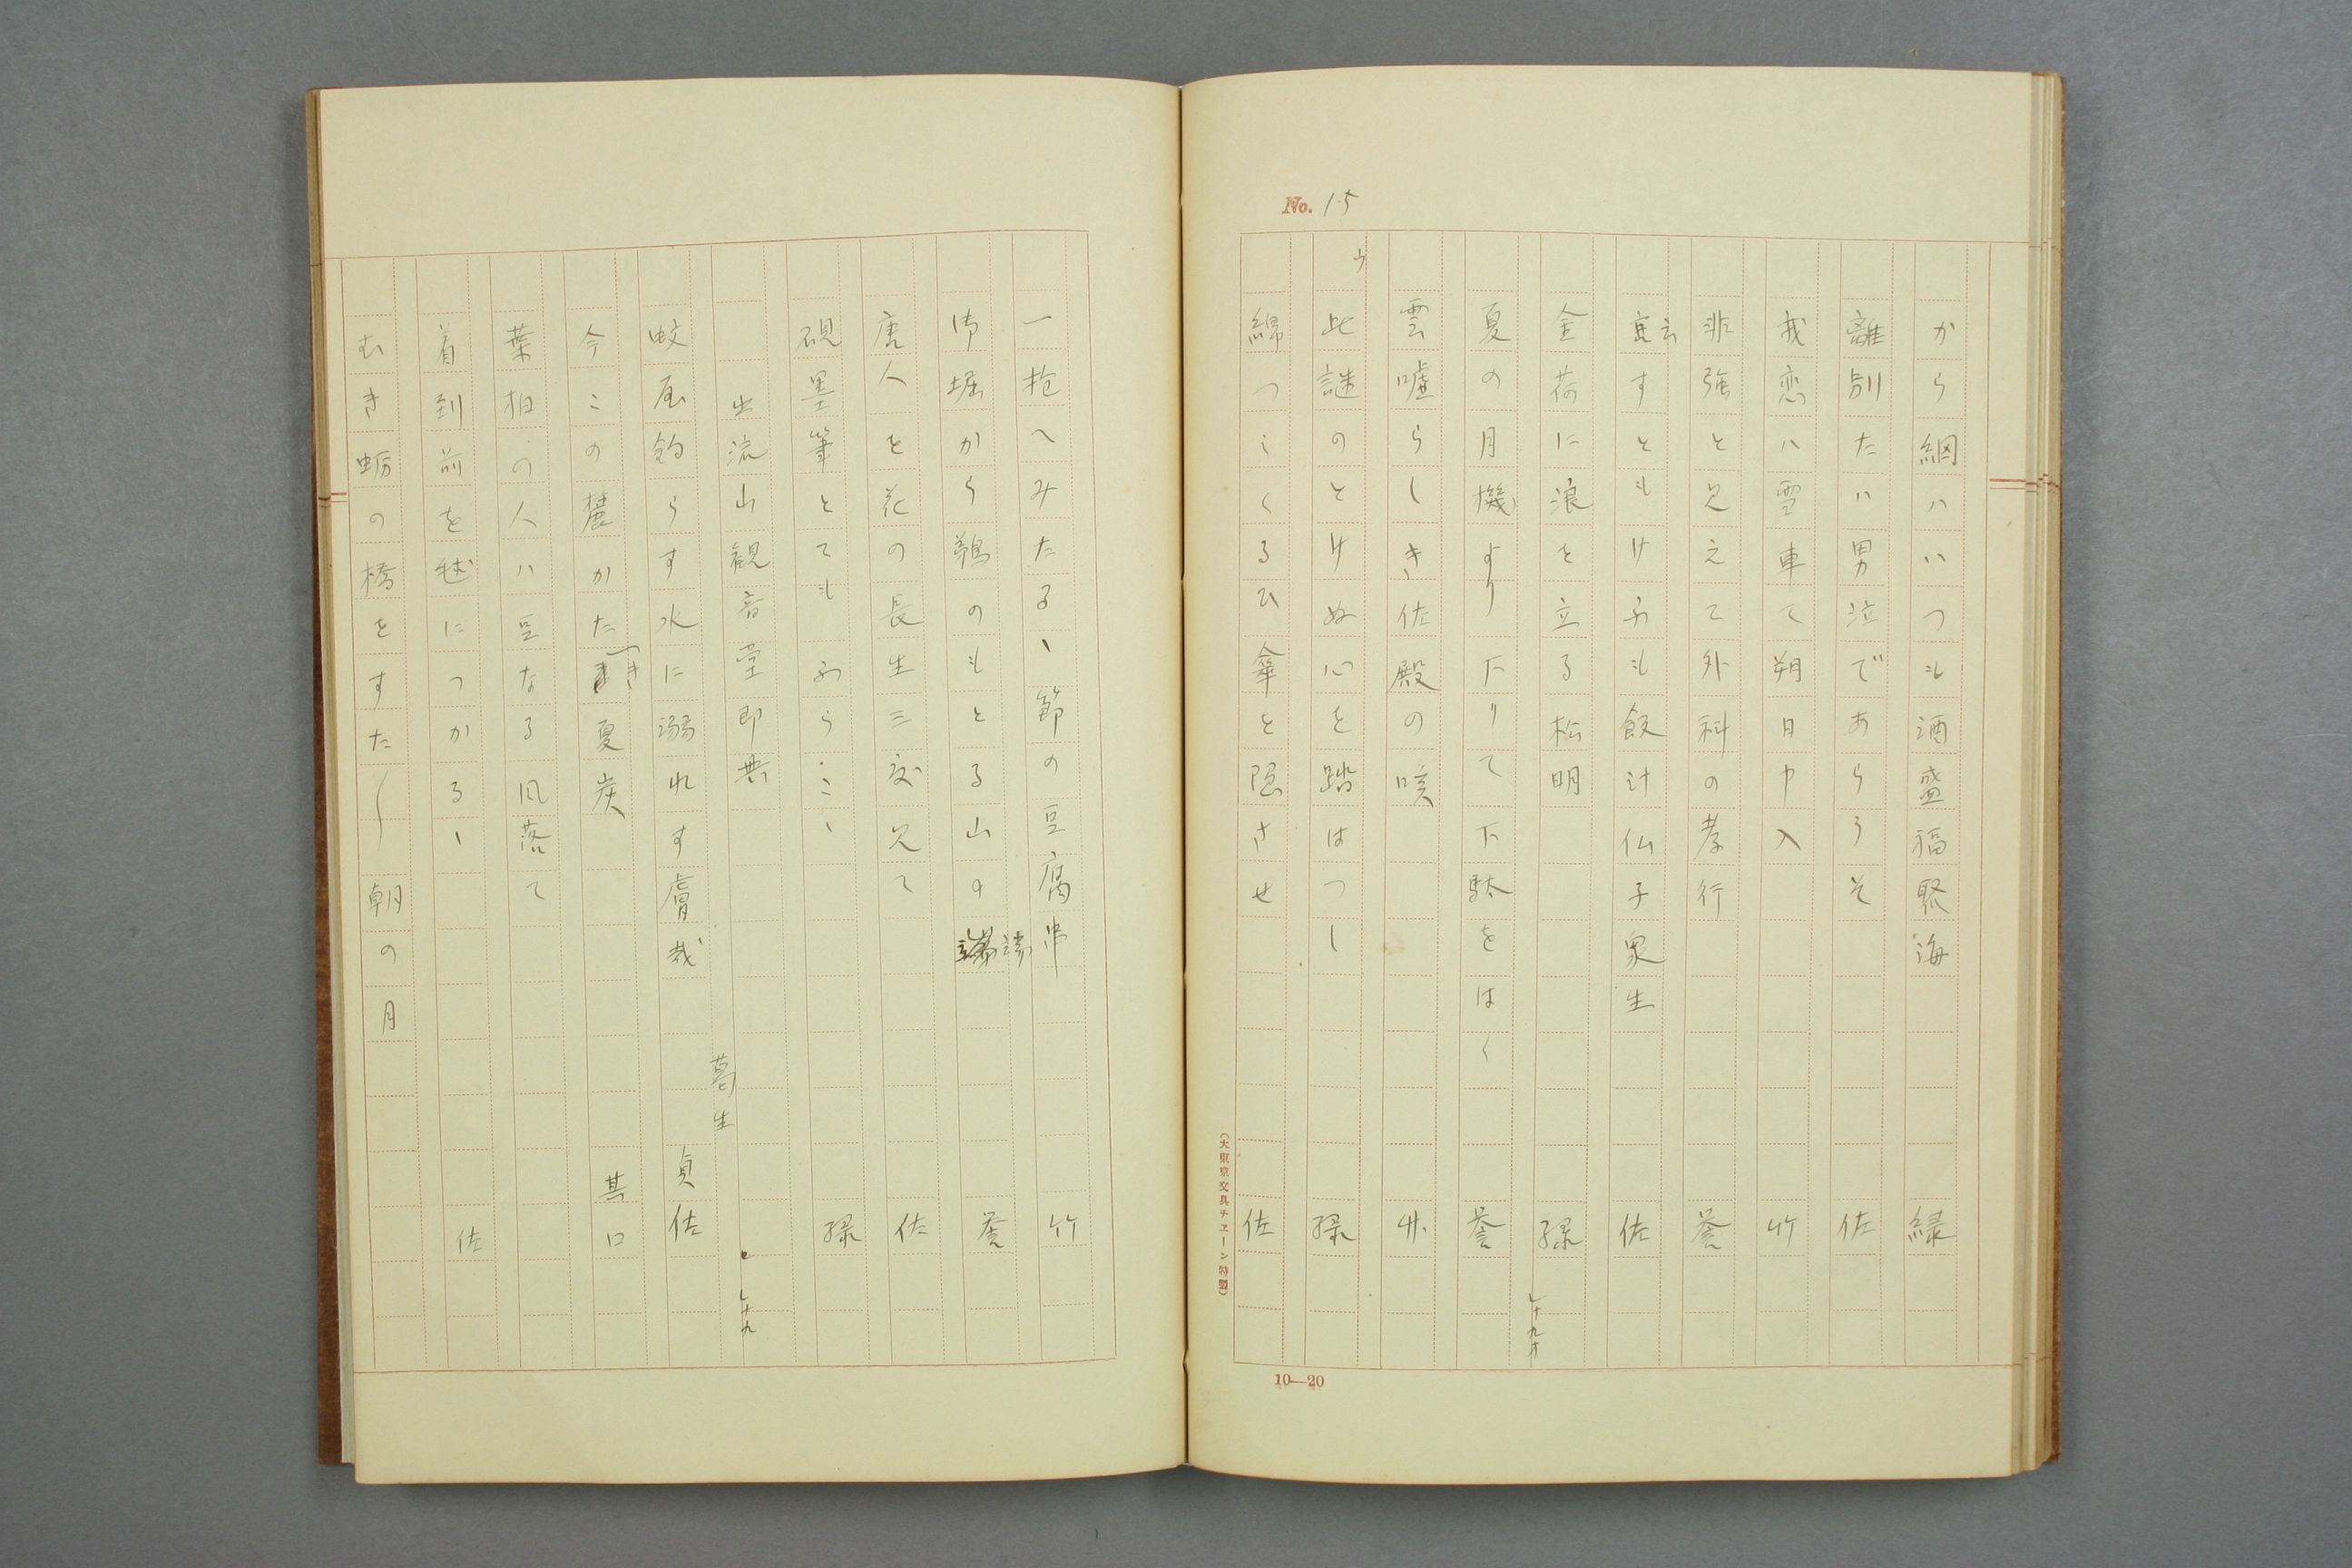 No. 15
から網ハいつも酒盛福聚海 緑
離別たハ男泣であらうそ 佐
我恋ハ雪車て朔日中入 竹
非強と見えて外科の孝行 誉
すともけふも飯汁仏子衆生 佐
金荷に浪を立る松明 緑
夏の月機より下りて下駄をはく 誉
雲嘘らしき佐殿の咳 竹
ウ
此謎のとけぬ心を踏はつし 緑
綿つミくるひ傘を隠させ 佐
(大東京文具チェーン特製)
10—20
一抱へみたるゝ節の豆腐串 竹
御堀から鵜のもとる山の端 誉
唐人を花の長生三度見て 佐
硯墨筆とてもふらこゝ 緑
出流山観音堂即興
葛生
蚊屋釣らす水に溺れす膚哉 貞佐
今この麓かたつき夏炭 其口
葉柏の人ハ豆なる風落て
着到前を毬につかるゝ 佐
むき蛎の橋をすた〱朝の月